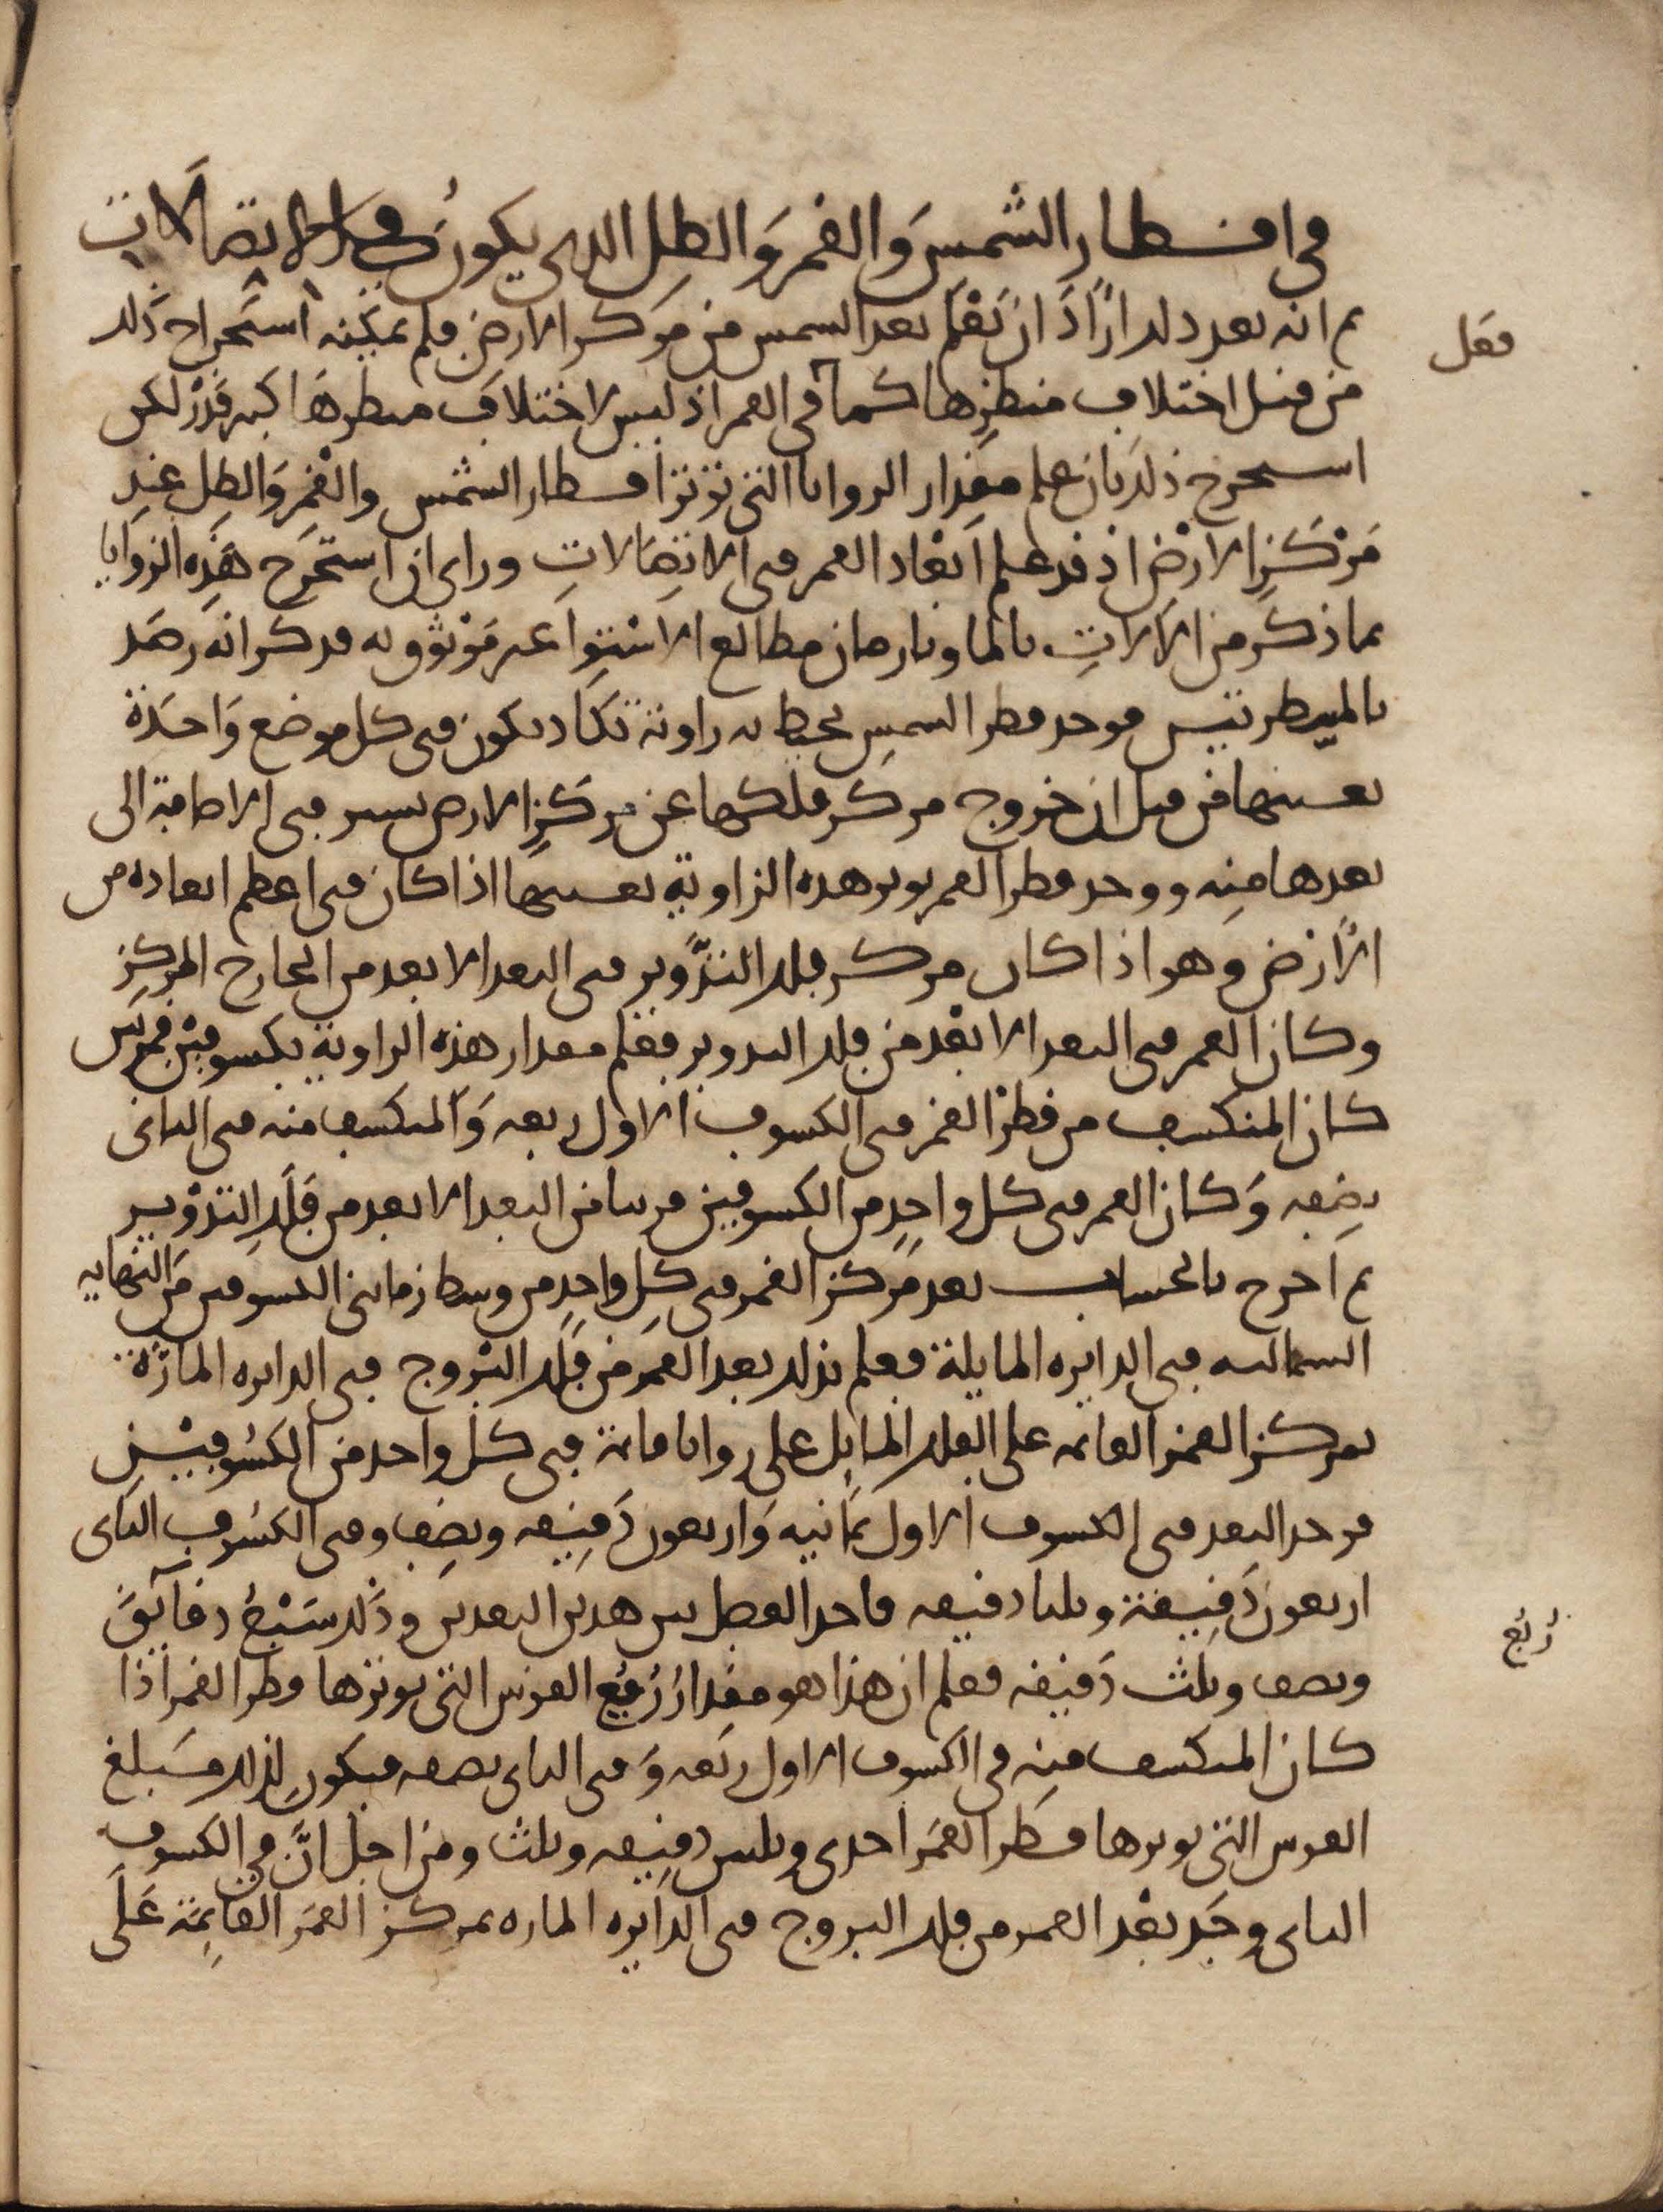 في اقطار الشمس وَالقمر وَالظل الذي يكون في الاتصالات
ثم انه بعد ذلك ارَادَ ان يَعْلم بعد الشمس من مَركز الارض فلم يمكنه استخراج ذلك
فعل
من قبل اختلاف منظرها كما في القمر اذ ليس لاختلاف منظرها كبير قدْر لكن
استخرج ذلك بان علم مقدار الزوايا التي توترها اقطار الشمس والقمر وَالظل عند
مَرْكز الارْض اذ قد علم ابْعاد القمر في الاتصَالاتِ وراى ان استخرَج هَذِه الزوَايا
بما ذكر من الآلاتِ بالما وبازمان مطالع الاسْتِوا غير مَوْثوق به فذكر انه رصَد
بالمسطرتين فوجد قطر الشمسِ تحيط به زاوية تكاد تكون في كل موضع وَاحدَة
بعينها من قبل ان خروج مركز فلكها عن مركز الارض يسير في الاضافة الى
بعدها منه ووجد قطر القمر يوتر هذه الزاوية بعينها اذا كان في اعظم ابعاده من
الارْض وهو اذا كان مركز فلك التدْوير في البعد الابعد من الخارج المركز
وكان القمر في البعد الابْعد من فلك التدوير فعلم مقدار هذه الزاوية بكسوفين قمريين
كان المنكسف من قطر القمر في الكسوف الاول ربعه وَالمنكسف منه في الثاني
نِصفه وَكان القمر في كل واحدٍ من الكسوفين قريبا من البعد الابعد من فَلك التدْوير
ثم اخرج بالحساب بعد مَركز القمر في كل واحدٍ من وسط زماني الكسوفين من النهاية
الشمالية في الدايره المايلة فعلم بذلك بعد القمر من فلك البْروج في الدايره المارّة
بمركز القمر القائمه على الفلك المايل على زوايا قائمة في كل واحد من الكسُوفيْنِ
فوجد البعد في الكسوف الاول ثمانيه وَاربعون دَقيقه ونصف وفي الكسُوف الثاني
اربعون دَقيقة وثلثا دقيقه فاخذ الفضل بين هذين البعدين وذلك سَبْع دقايق
رُبُع
ونصف وثلث دَقيقه فعلم ان هذا هو مقدار رُبُع القوس التي يوترها قطر القمر اذا
كان المنكسف منه في الكسوف الاول ربعه وَفي الثاني نصفه فيكون لذلك مَبلغ
القوس التي يوترها قطر القمَر احدى وثلثين دقيقه وثلث ومن اجْل انَّ في الكسوف
الثاني وجَد بعْد القمر من فلك البروج في الدايره الماره بمركز القمَر القايِمَة عَلَى